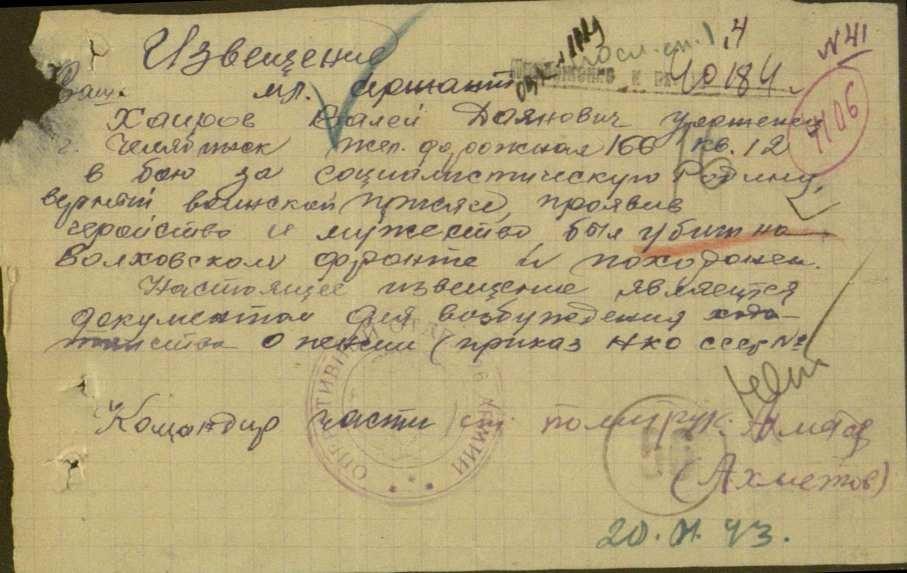 Извещение
№ 41
40184
4106
Ваш мл. сержант
Хаиров Валей Даянович уроженец
г. Челябинск Жел. дорожная 166 кв. 12
в бою за социалистическую Родину,
верный воинской присяге, проявив
геройство и мужество был убит на
Волховском фронте и похоронен.
Настоящее извещение является
документом для возбуждения хода-
тайства о пенсии (приказ НКО СССР №
Командир части ст. политрук Ахметов
(Ахметов)
АРМИИ